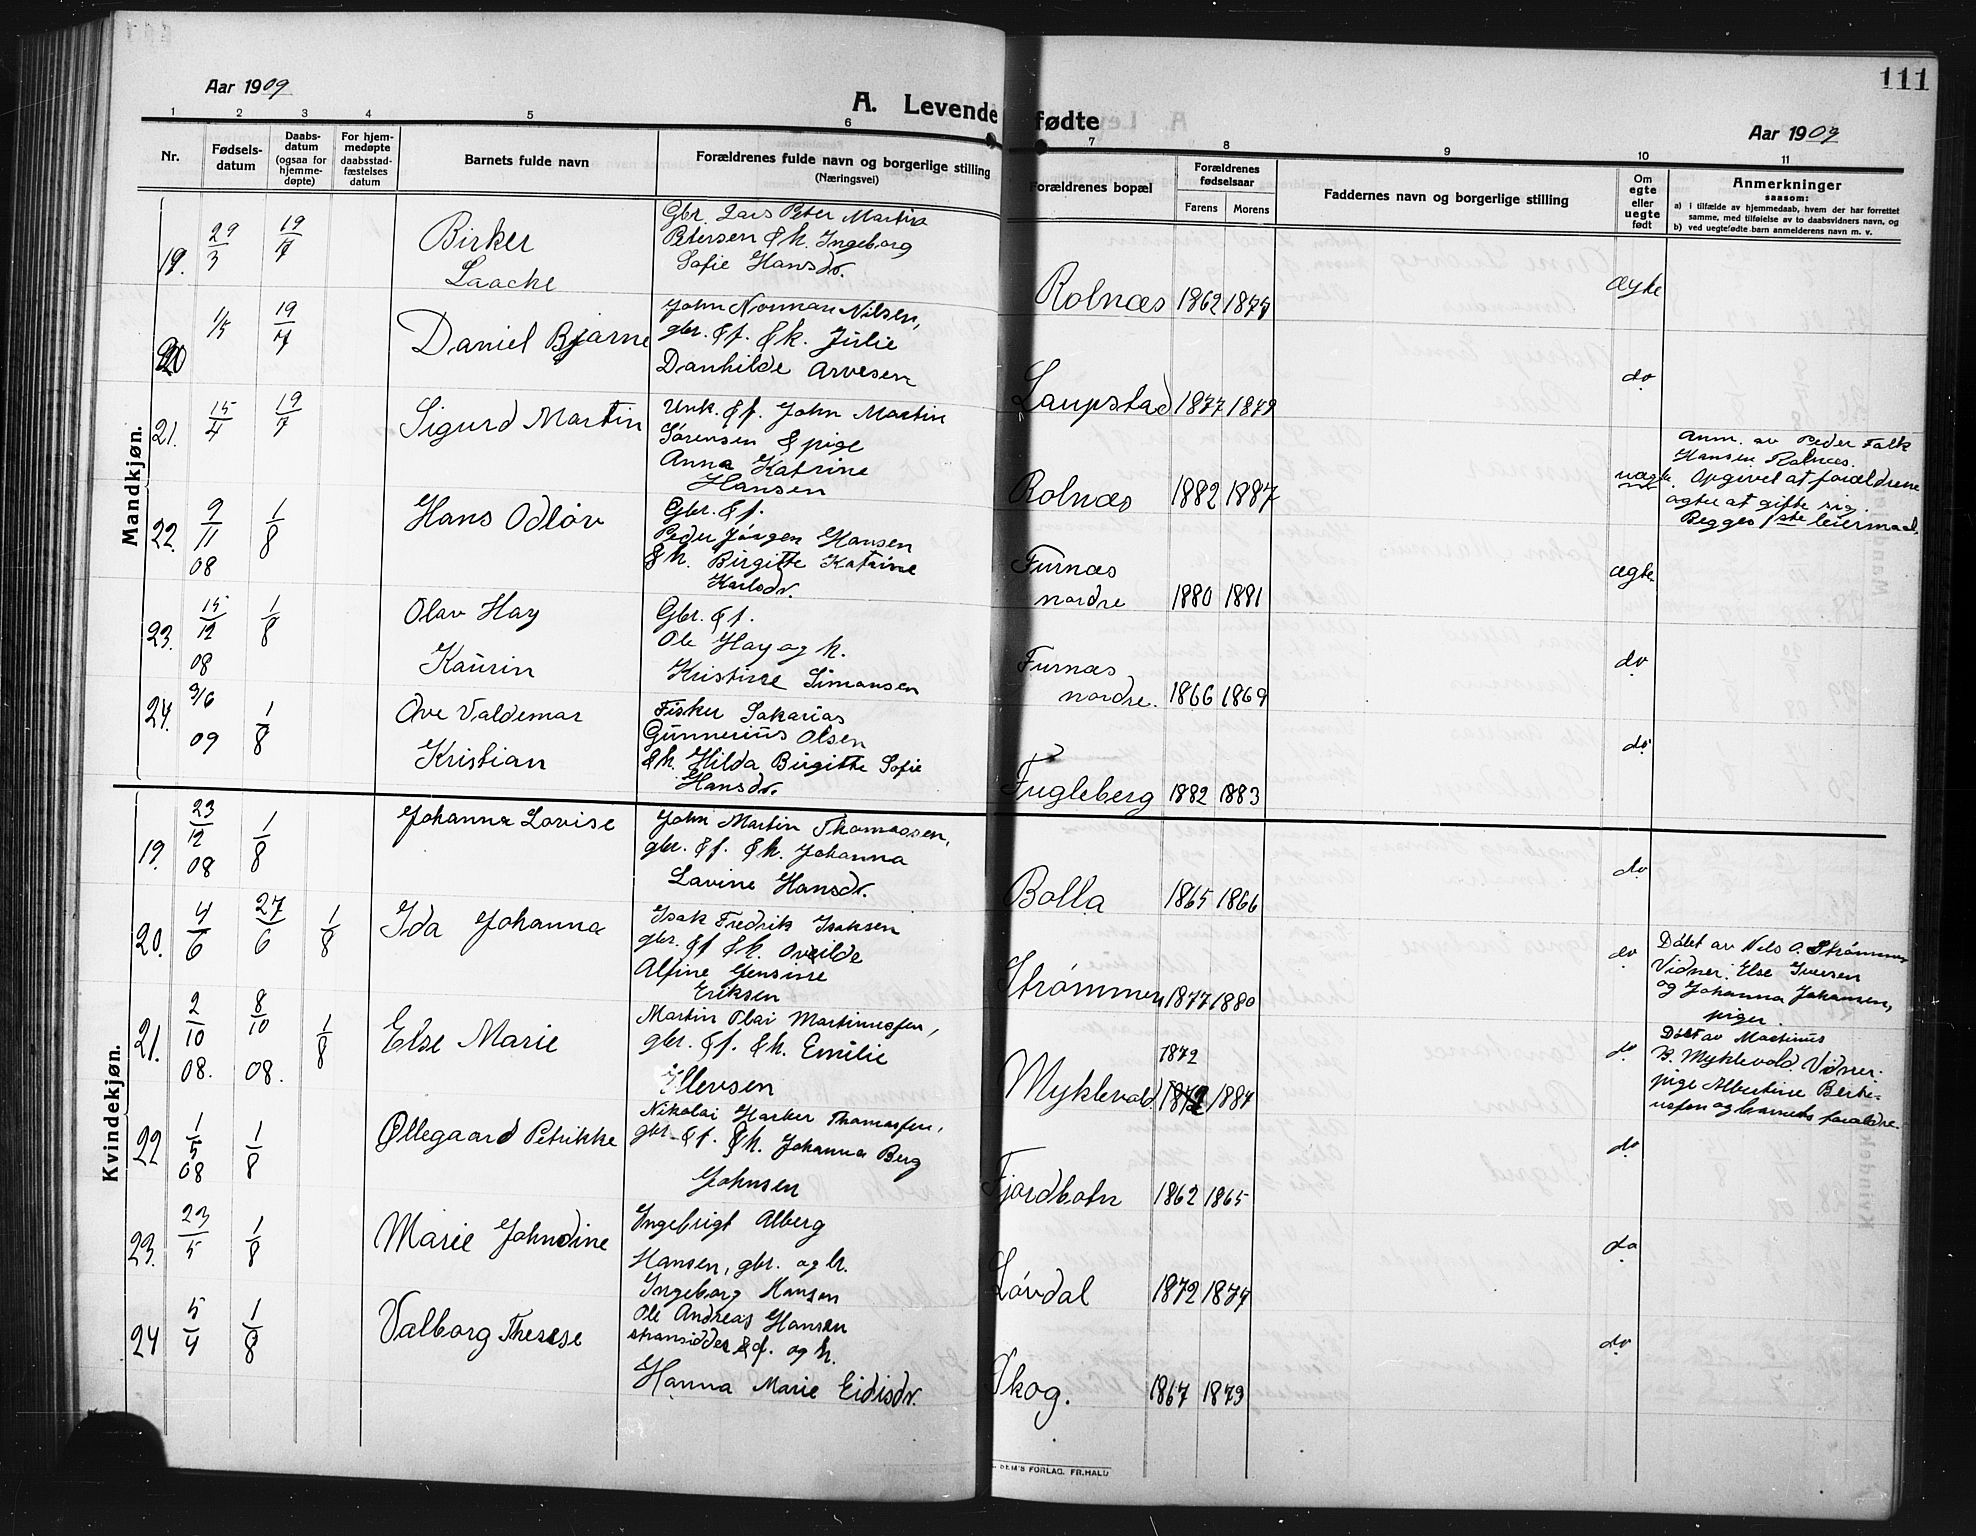 Aar 1909
A. Levende
fødte
111
Aar 1909
1 2 3 4 5 6 7 8 9 10 11
Nr.
Fødsels-
datum
Daabs-
datum
(ogsaa for
hjemme-
døpte)
For hjem-
medøpte
daabsstad-
fæstelses
datum
Barnets fulde navn
Forældrenes fulde navn og borgerlige stilling
(Næringsvei)
Forældrenes bopæl
Forældrenes
fødselsaar
Farens Morens
Faddernes navn og borgerlige stilling
Om
egte
eller
uegte
født
Anmerkninger
saasom:
a) i tilfælde av hjemmedaab, hvem der har forrettet
samme, med tilføielse av to daabsvidners navn, og
b) ved uegtefødte barn anmelderens navn m. v.
Mandkjøn.
19. 29/3 19/7
Birker
Laache
Gbr. Lars Peter Martin
Petersen & h. Ingeborg
Sofie Hansdr.
Rolnæs 1862 1877 ægte
20 1/5 19/7
Daniel Bjarne
John Norman Nilsen,
gbr. & f. & h. Julie
Danhilde Arvesen
Laupstad 1877 1879 do
21. 15/4 19/7
Sigurd Martin
Unk. & f. John Martin
Sørensen & pige
Anna Katrine
Hansen
Rolnæs 1882 1887 uægte.
Anm. av Peder Falk
Hansen Rolnæs.
Opgivet at forældrene
agter at gifte sig.
Begges 1ste leiermaal.
22. 9/11 08 1/8
Hans Odløv
Gbr. & f.
Peder Jørgen Hansen
& h. Birgitte Katrine
Karlsdr.
Furnæs
nordre 1880 1881 ægte.
23. 15/12 08 1/8
Olav Hay
Kaurin
Gbr. & f.
Ole Hay og h.
Kristine Simonsen
Furnæs
nordre. 1866 1869 do
24. 9/6 09 1/8
Ove Valdemar
Kristian
Fisker Sakarias
Gunnerius Olsen
& h. Hilda Birgitte Sofie
Hansdr.
Fugleberg 1882 1883 do
Kvindekjøn.
19. 23/12 08 1/8
Johanna Lovise
John Martin Thomassen,
gbr. & f. & h. Johanna
Lavine Hansdr.
Bolla 1865 1866 do
20. 4/6 27/6 1/8
Ida Johanna
Isak Fredrik Isaksen
gbr. & f & h. Ovilde
Alfine Jensine
Eriksen
Strømmen 1877 1880 do
Døbt av Nils A. Strømmen
Vidner: Else Iversen
og Johanna Johansen,
piger.
21. 2/10 08. 8/10 08. 1/8
Else Marie
Martin Olai Martinussen,
gbr. & f. & h. Emilie
Ellevsen
Myklevold 1872 1884 do
Døbt av Martinus
B. Myklevold. Vidner:
pige Albertine Berte-
ussen og barnets forældre.
22 1/5 08 1/8
Øllegaard Petrikke
Nikolai Harker Thomassen,
gbr & f. & h. Johanna Berg
Johnsen
Fjordbotn 1862 1865 do
23. 23/5 1/8
Marie Johndine
Ingebrigt Alberg
Hansen, gbr. og h.
Ingeborg Hansen
Løvdal 1872 1877 do
24 5/4 1/8
Valborg Therese
Ole Andreas Hansen
strandsidder & f. og h.
Hanna Marie Eidisdr.
Skog. 1867 1879 do
DEM'S FORLAG, FR.HALD